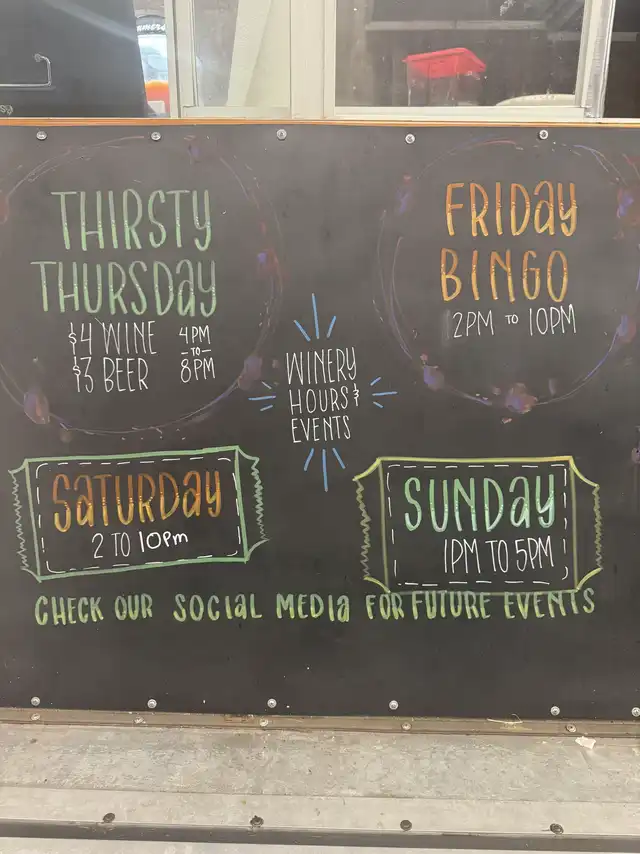 THIRSTY
THURSDAY
$4 WINE
$3 BEER
4PM
-TO-
8PM
FRIDAY
BINGO
2PM TO 10PM
WINERY
HOURS &
EVENTS
SATURDAY
2 TO 10pm
SUNDAY
1PM TO 5PM
CHECK OUR SOCIAL MEDIA FOR FUTURE EVENTS